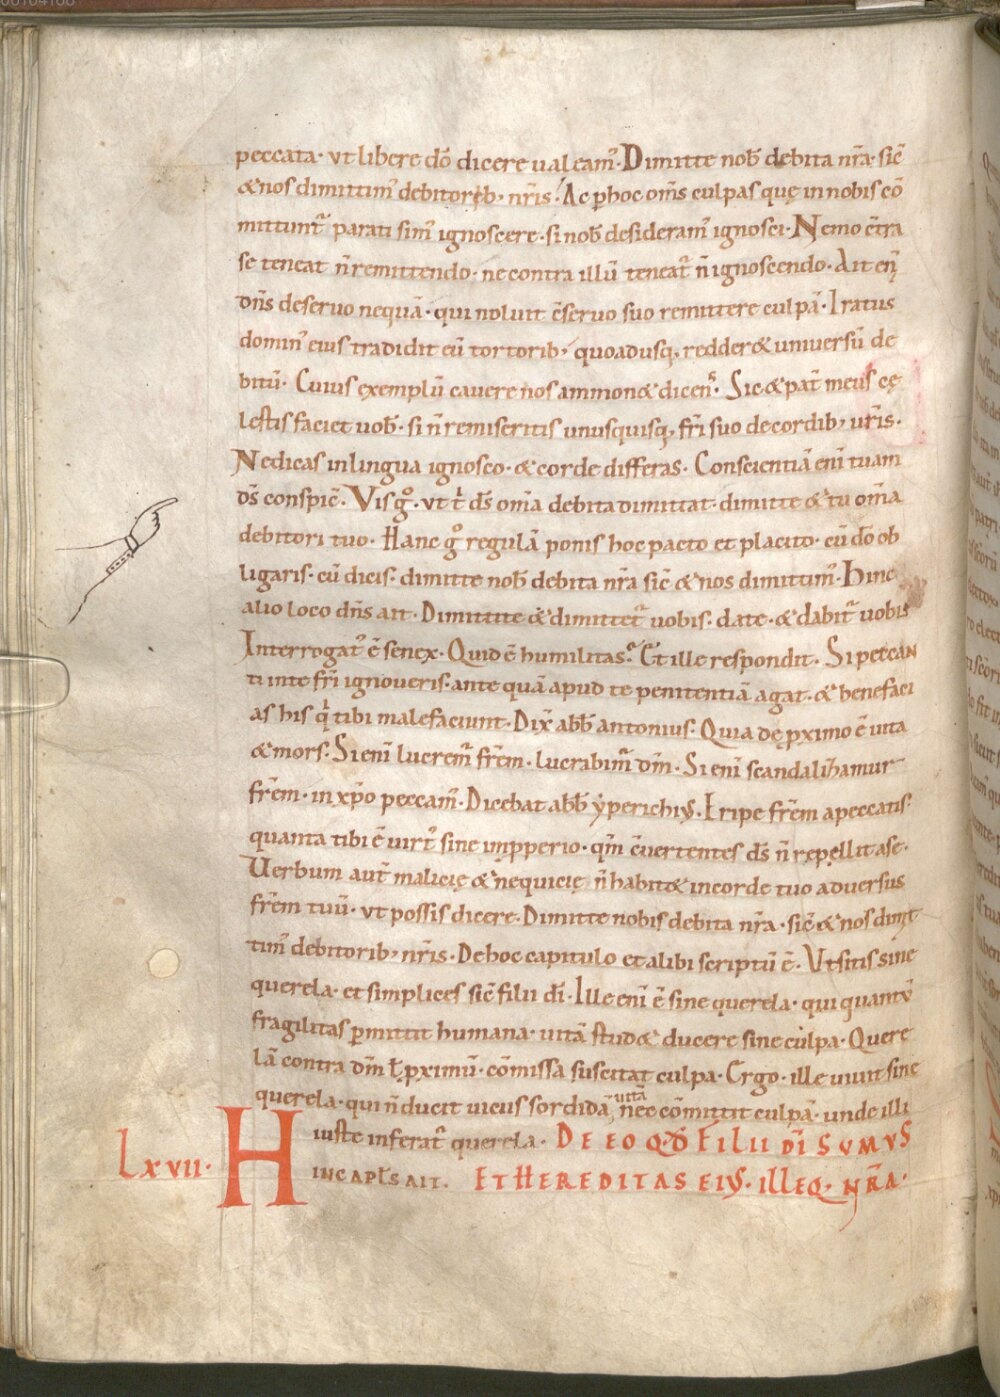 peccata· vt libere dō dicere ualeam᷒· Dimitte nob̄ debita nr̄a· sic̄
& nos dimittim᷒ debitorib; nr̄is· Ac p hoc om̄s culpas quę in nobis cō
mittunt᷑ parati sim᷒ ignoscere· si nob̄ desideram᷒ ignosci· Nemo c̄tra
se teneat n̄ remittendo· ne contra illū teneat᷑ n̄ ignoscendo· Ait eni̅
dn̄s de seruo nequā· qui noluit c̄seruo suo remittere culpā· Iratus
domin᷒ eius tradidit eū tortorib; quo adusq; redder& uniuersū de
bitū· Cuius exemplū cauere nos ammon& dicen᷒· Sic & pat̄ meus cę
lestis faciet uob̄· si n̄ remiseritis unusquisq; fr̄i suo de cordib; ur̄is·
Ne dicas in lingua ignosco· & corde differas· Conscientiā eni̅ tuam
ds̄ conspic̄· Vis gͦ· vt tⁱ ds̄ om̄a debita dimittat· dimitte & tu om̄a
debitori tuo· Hanc gͦ regulā ponis hoc pacto et placito· cū dō ob
ligaris· cū dicis· dimitte nob̄ debita nr̄a sic̄ & nos dimittim᷒· Hinc
alio loco dn̄s ait· Dimittite & dimittet᷑ uobis· date· & dabit᷑ uobis
Interrogat᷒ ē senex· Quid ē humilitas? Et ille respondit· Si peccan
ti in te fr̄i ignoueris· ante quā apud te penitentiā agat· & benefaci
as his qⁱ tibi male faciunt· Dix̄ abb̄ antonius· Quia de pximo ē uita
& mors· Si eni̅ lucrem᷑ frēm· lucrabim᷑ dm̄· Si eni̅ scandalizamur
frēm· in xp̄o peccam᷒· Dicebat abb̄ yperichiꝰ· Eripe frēm a peccatis·
quanta tibi ē virt᷒ sine impperio· qm̄ c̄uertentes ds̄ n̄ repellit a se·
Uerbum aut̄ malicię & nequicię n̄ habit& in corde tuo aduersus
frēm tuū· vt possis dicere· Dimitte nobis debita nr̄a· sic̄ & nos dimit
tim᷒ debitorib; nr̄is· De hoc capitulo et alibi scriptū ē· Ut sitis sine
querela· et simplices sic̄ filii dī· Ille eni̅ ē sine querela· qui quantū
fragilitas pmittit humana· uitā stud& ducere sine culpa· Quere
lā contra dm̄ ł pximū· cōmissa suscitat culpa· Ergo· ille uiuit sine
querela· qui n̄ ducit uicus sordidā uitā nec cōmittit culpā· unde illi
iuste inferat᷑ querela· DE EO QD̄ FILII DI̅ SUMVS
LXVII· HINC APL̄S AIT· ET HEREDITAS EIꝰ· ILLEQ· NR̄A·